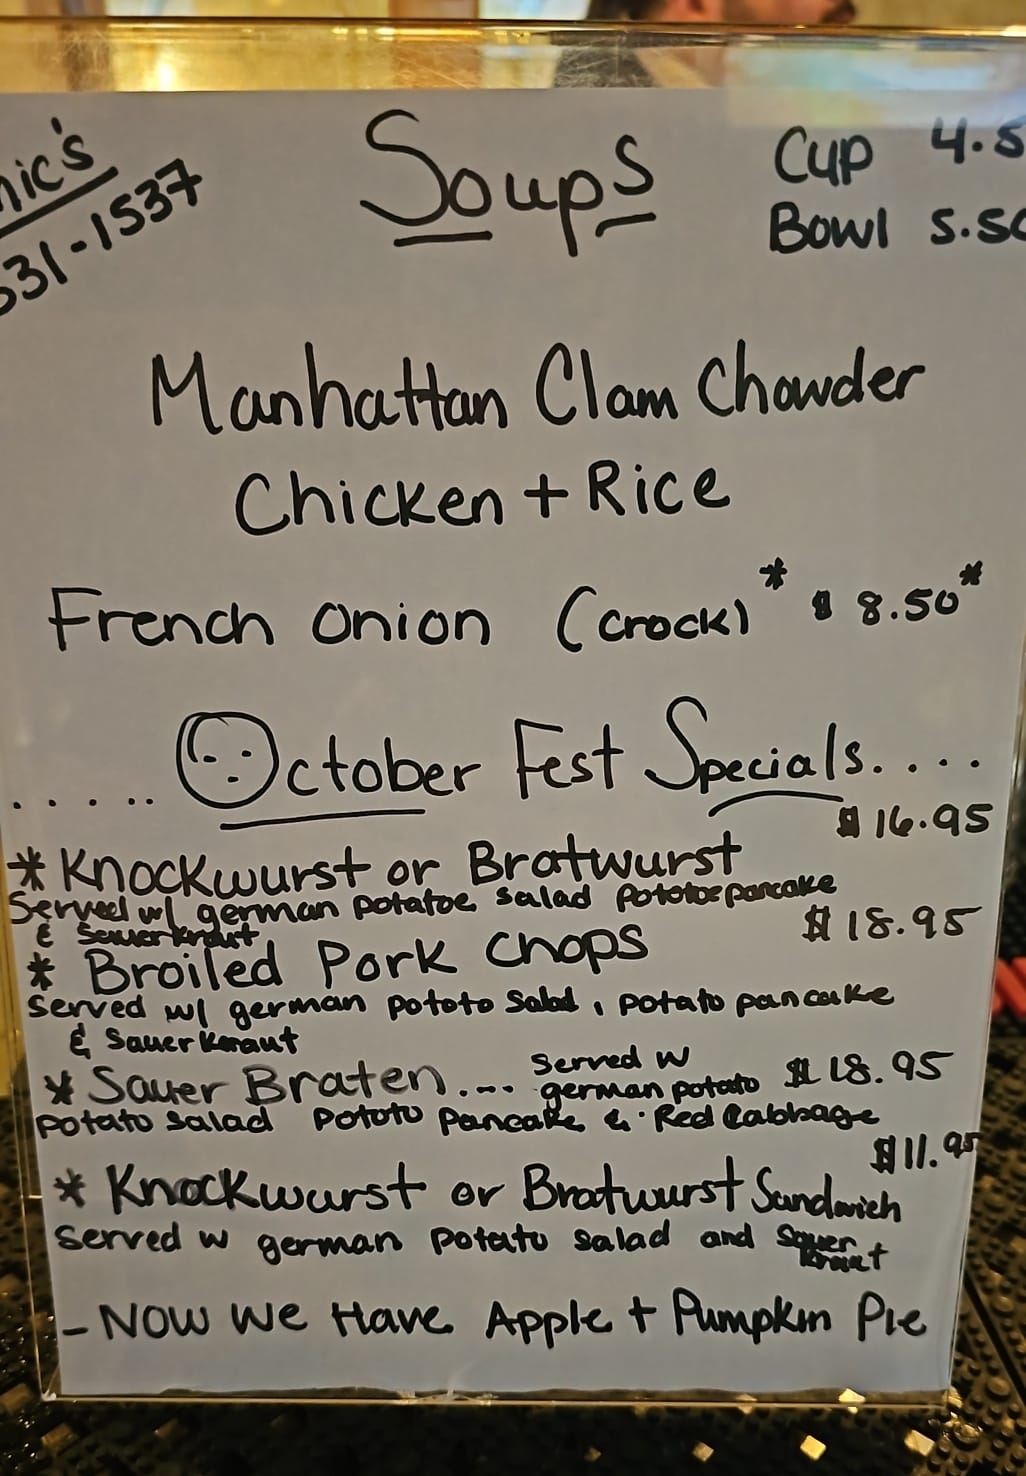 nic's
31-1537
Soups
Cup 4.5
Bowl 5.50
Manhattan Clam Chowder
Chicken + Rice
French Onion (crock)* $ 8.50*
..... October Fest Specials....
$16.95
* Knockwurst or Bratwurst
Served w/ german potatoe salad pototoe pancake
& Sauerkraut
$18.95
* Broiled Pork Chops
Served w/ german pototo Salad, potato pancake
& Sauer Karaut
* Sauer Braten.... Served w german potato $18.95
potato salad pototo pancake & Red Cabbage
$11.95
* Knockwurst or Bratwurst Sandwich
Served w german potato salad and Sauer Kraut
- NOW WE Have Apple + Pumpkin Pie